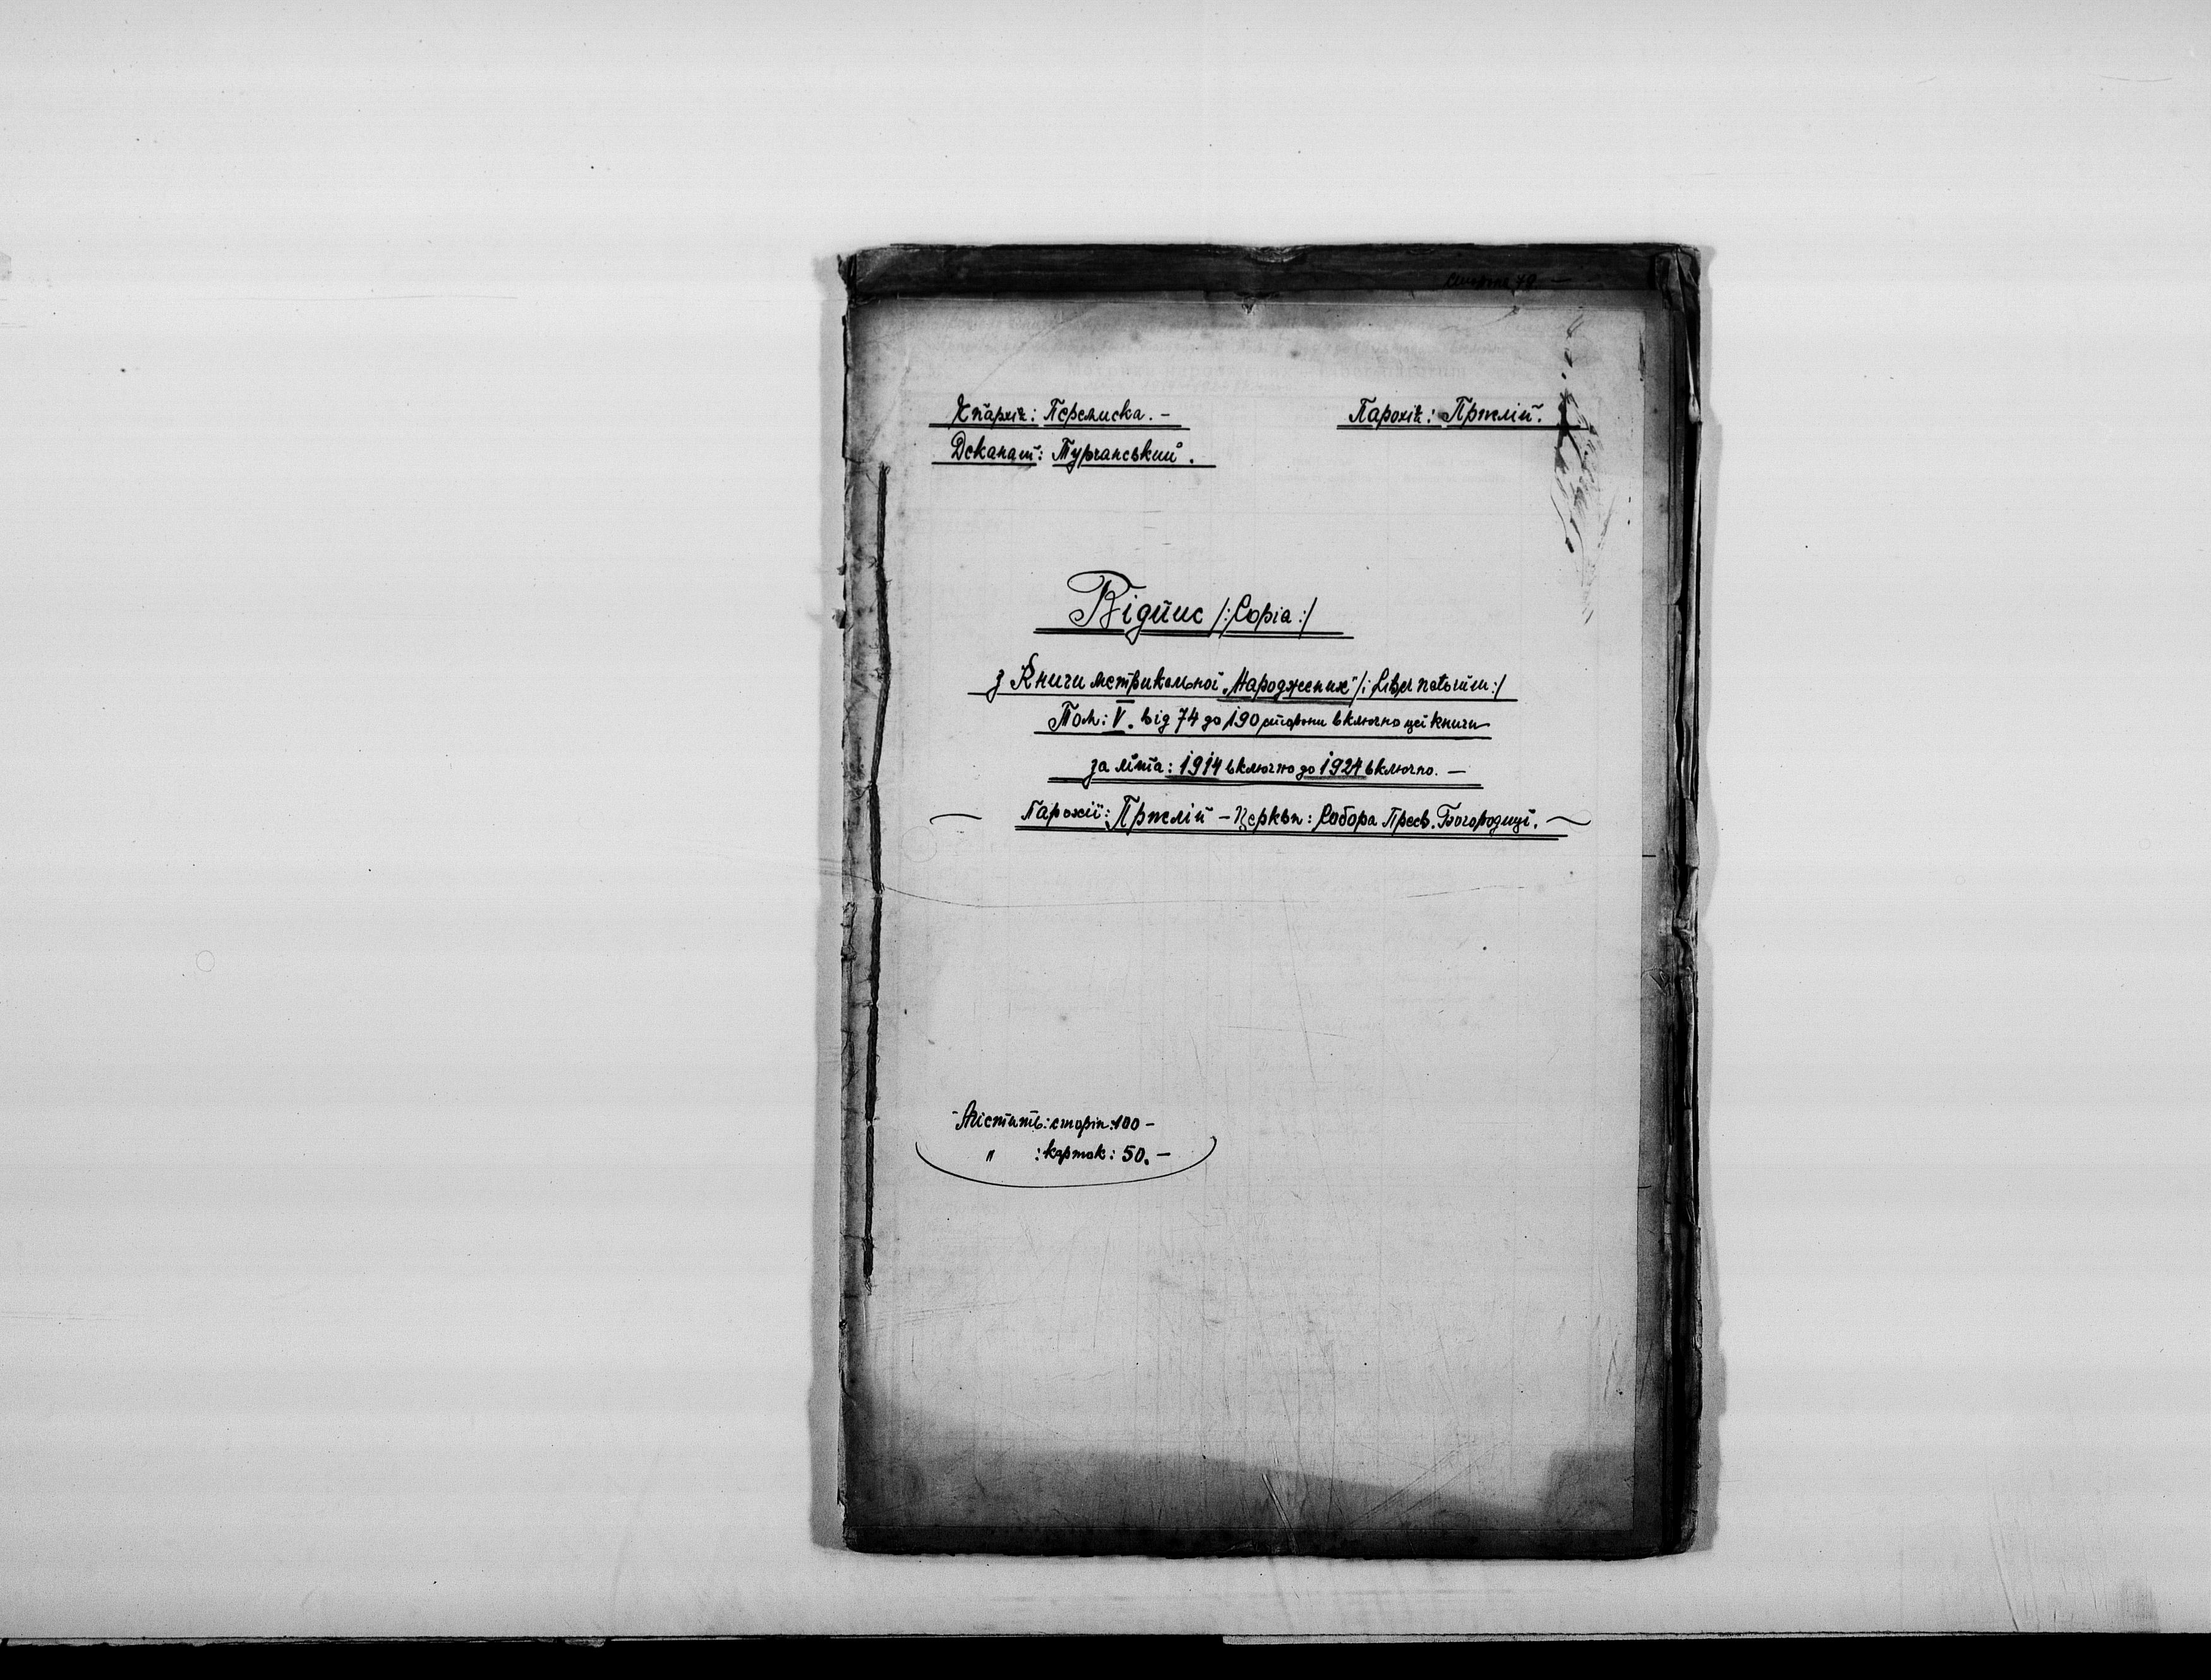 Єпархія: Перемиска. – Парохія: Прислій.
Деканат: Турчанський.
Відпис /: Copia :/
з Книги метрикальної „Народжених" /: Liber natorum :/
Том: V. від 74 до 190 сторони включно цеї книги
за літа: 1914 включно до 1924 включно. –
Парохії: Прислій – Церкви: Собора Пресв. Богородиці.
Містить: сторін: 100 –
" : карток: 50. –